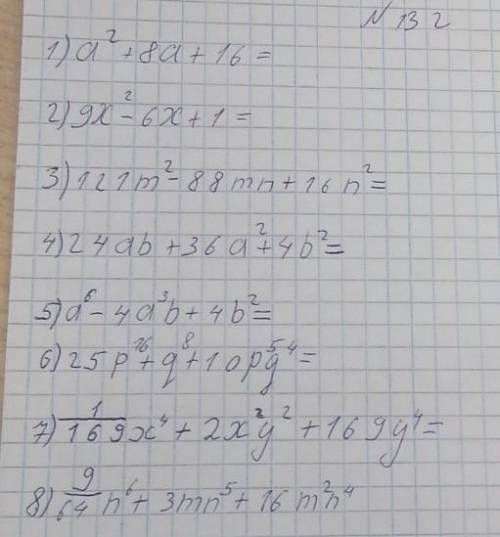 N 132
1) a² + 8a + 16 =
2) 9x² - 6x + 1 =
3) 121m² - 88mn + 16n² =
4) 24ab + 36a² + 4b² =
5) a⁶ - 4a³b + 4b² =
6) 25p¹⁶ + q⁸ + 10p⁵q⁴ =
7) 1/169 x⁴ + 2x²y² + 169y⁴ =
8) 9/64 n⁶ + 3mn⁵ + 16m²n⁴